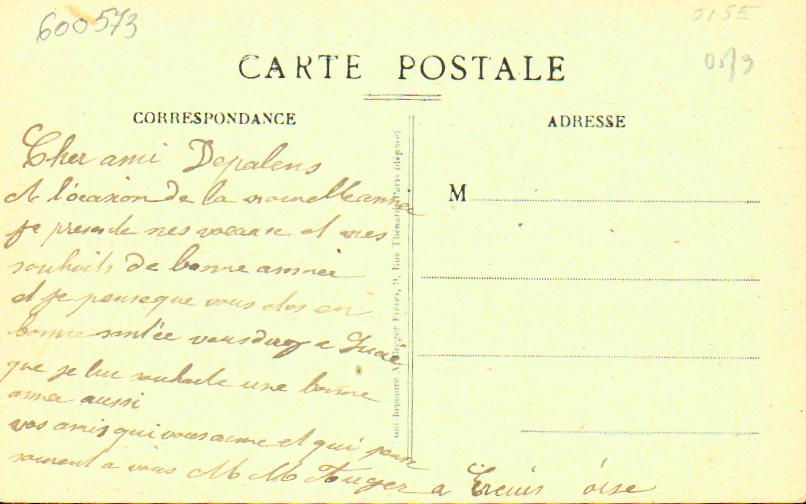 600573
OISE
05/9
CARTE POSTALE
CORRESPONDANCE
ADRESSE
M
Cher ami Depalens
A l'ocasion de la nouvelle année
je presente mes voeaux et mes
souhaits de bonne année
et je pense que vous etes en
bonne santée vous direz a
que je lui souhaite une bonne
anneé aussi
vos amis qui vous aime et qui pense
souvent a vous M M Auger a oise
Frères, 9, Rue Thénard, Paris (déposé)